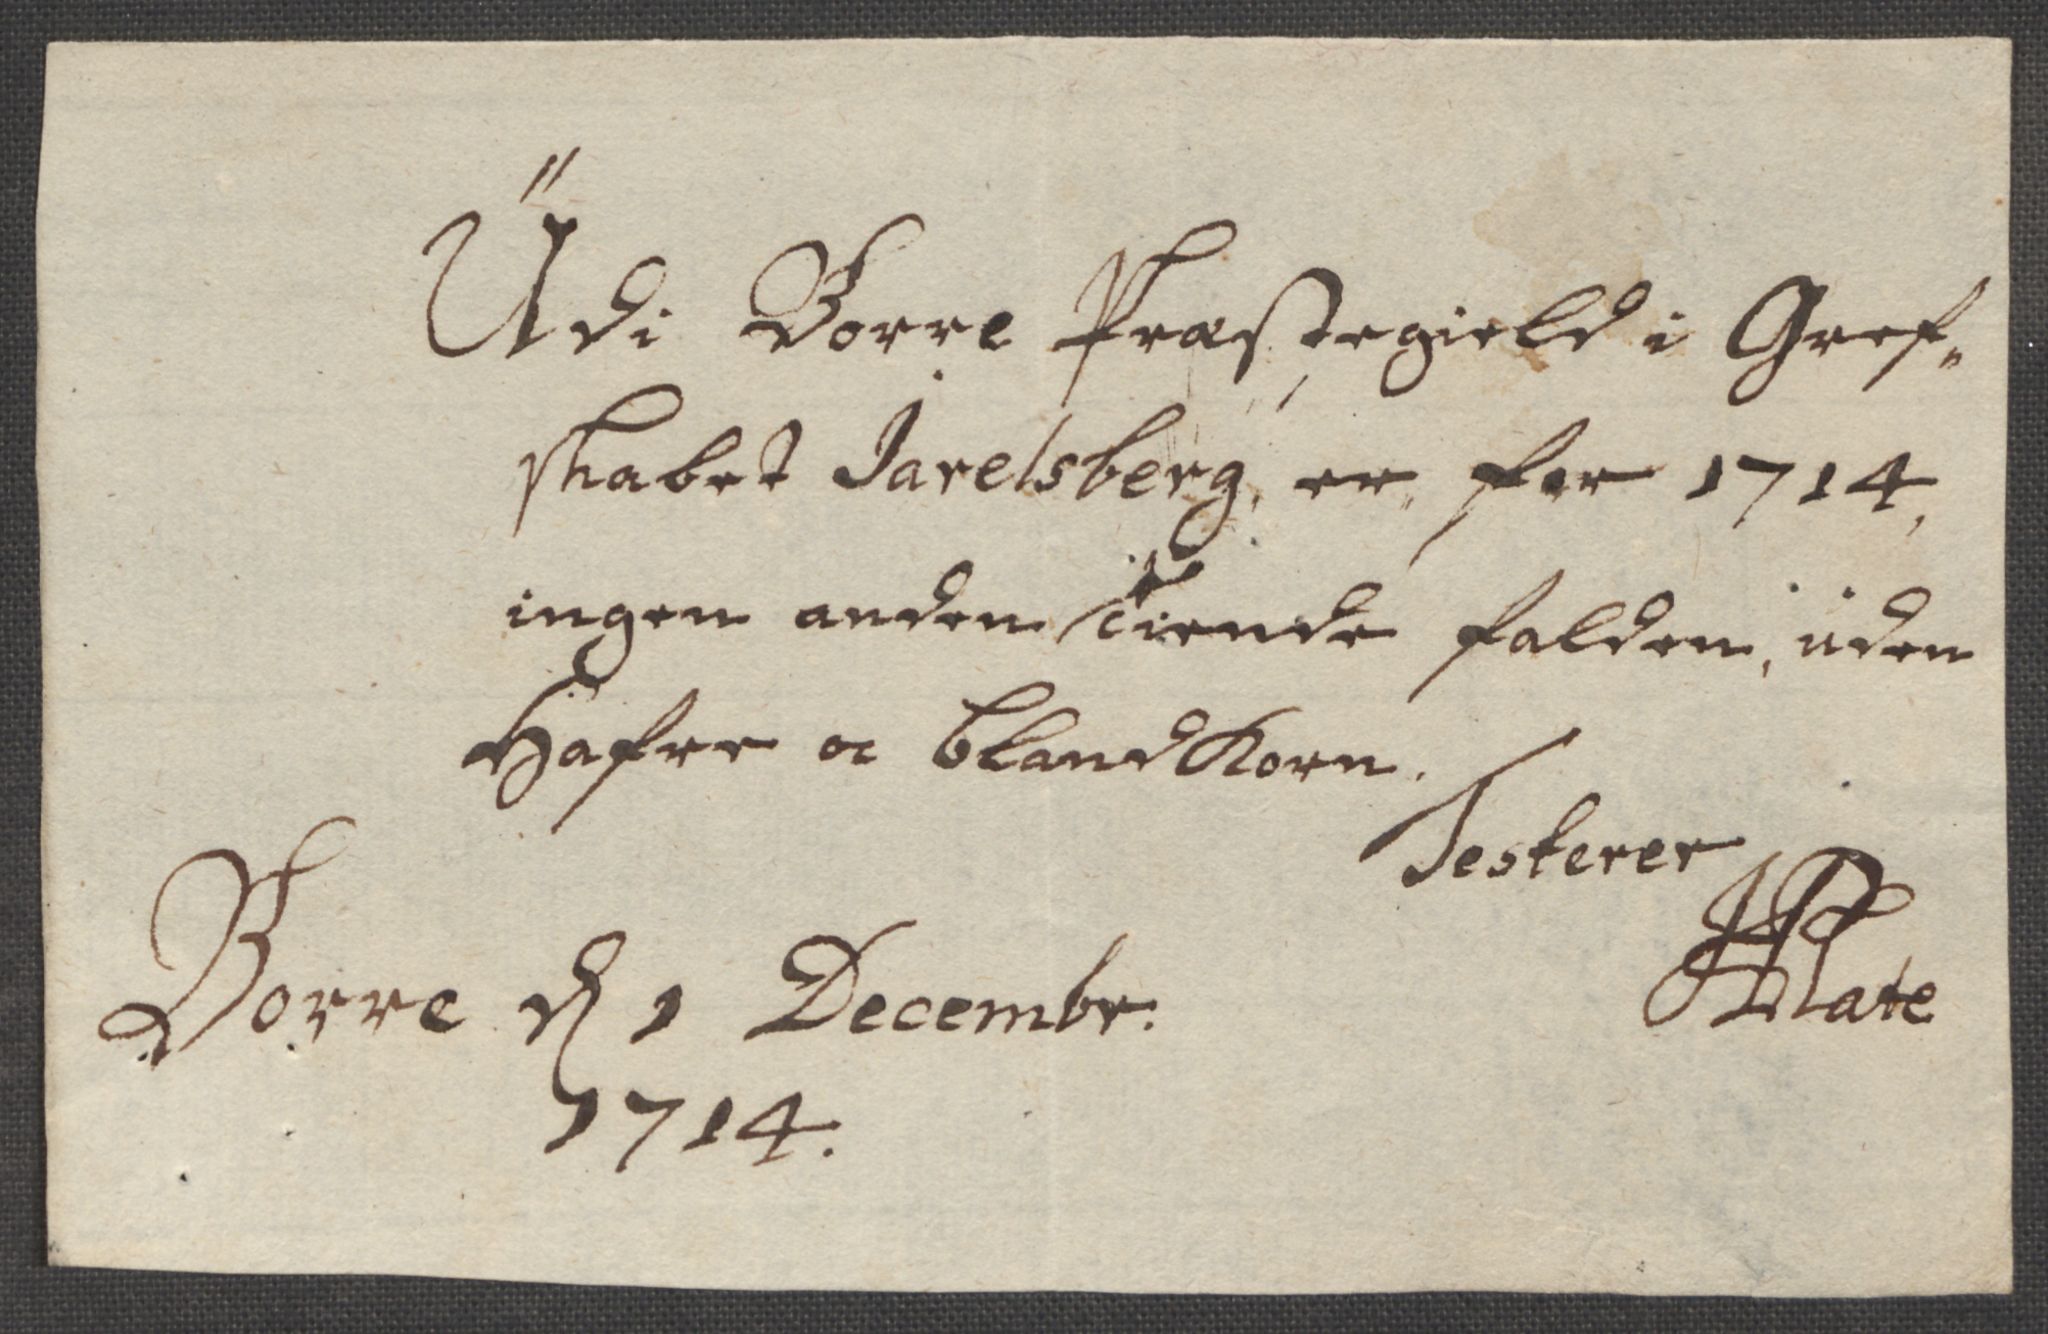 Üdi Borre Præstegield i Gref-
skabet Jarelsberg, er, for 1714,
ingen anden Tiende falden, uden
Hafre oc bland Korn.
Testerer
Plate
Borre d. 1 Decembr.
1714.